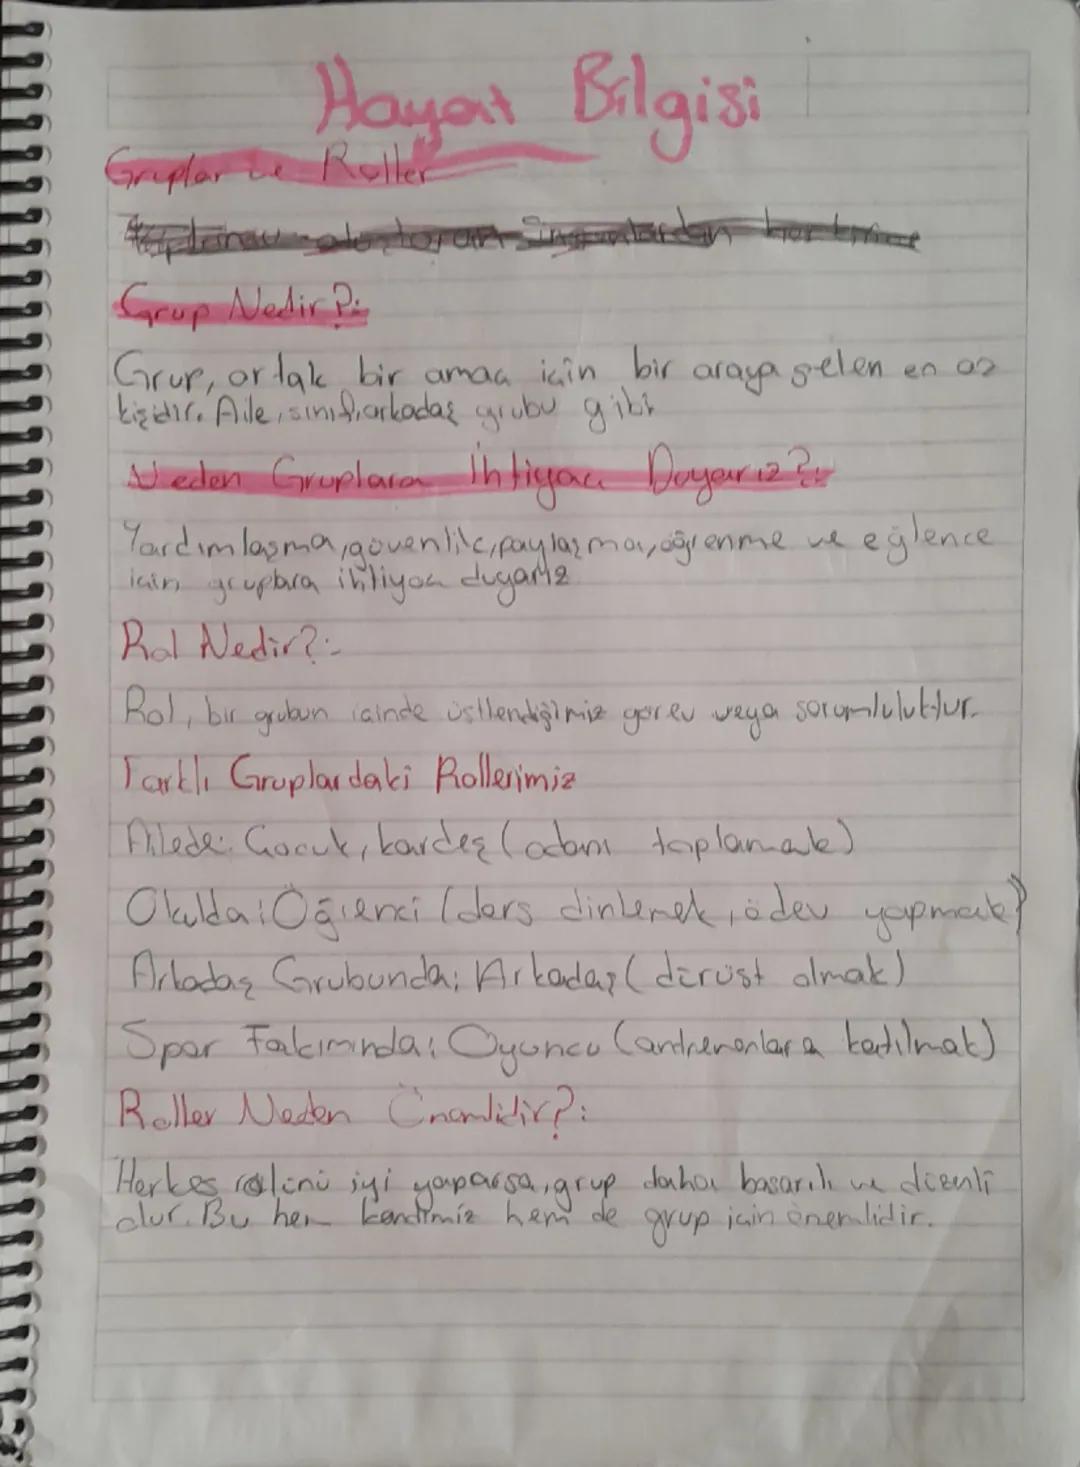 Hayat Bilgisi
Gruplar ve Roller
Grup Nedir?:
Grup, ortak bir amaç için bir araya gelen en az
kişidir. Aile, sınıf, arkadaş grubu gibi
Neden Gruplara İhtiyaç Duyarız?:
Yardımlaşma, güvenlik, paylaşma, öğrenme ve eğlence
için gruplara ihtiyaç duyarız
Rol Nedir?:
Rol, bir grubun içinde üstlendiğimiz görev veya sorumluluktur.
Farklı Gruplardaki Rollerimiz
Ailede: Çocuk, kardeş (odanı toplamak)
Okulda: Öğrenci (ders dinlemek, ödev yapmak)
Arkadaş Grubunda: Arkadaş (dürüst olmak)
Spor Takımında: Oyuncu (antrenanlara katılmak)
Roller Neden Önemlidir?:
Herkes rolünü iyi yaparsa, grup daha başarılı ve düzenli
olur. Bu hem kendimiz hem de grup için önemlidir.